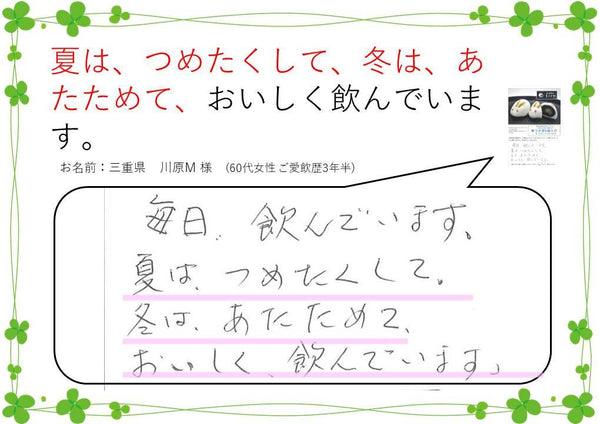 夏は、つめたくして、冬は、あ
たためて、おいしく飲んでいま
す。
お名前：三重県　川原M 様　(60代女性 ご愛飲歴3年半)
毎日、飲んでいます。
夏は、つめたくして。
冬は、あたためて、
おいしく、飲んでいます」